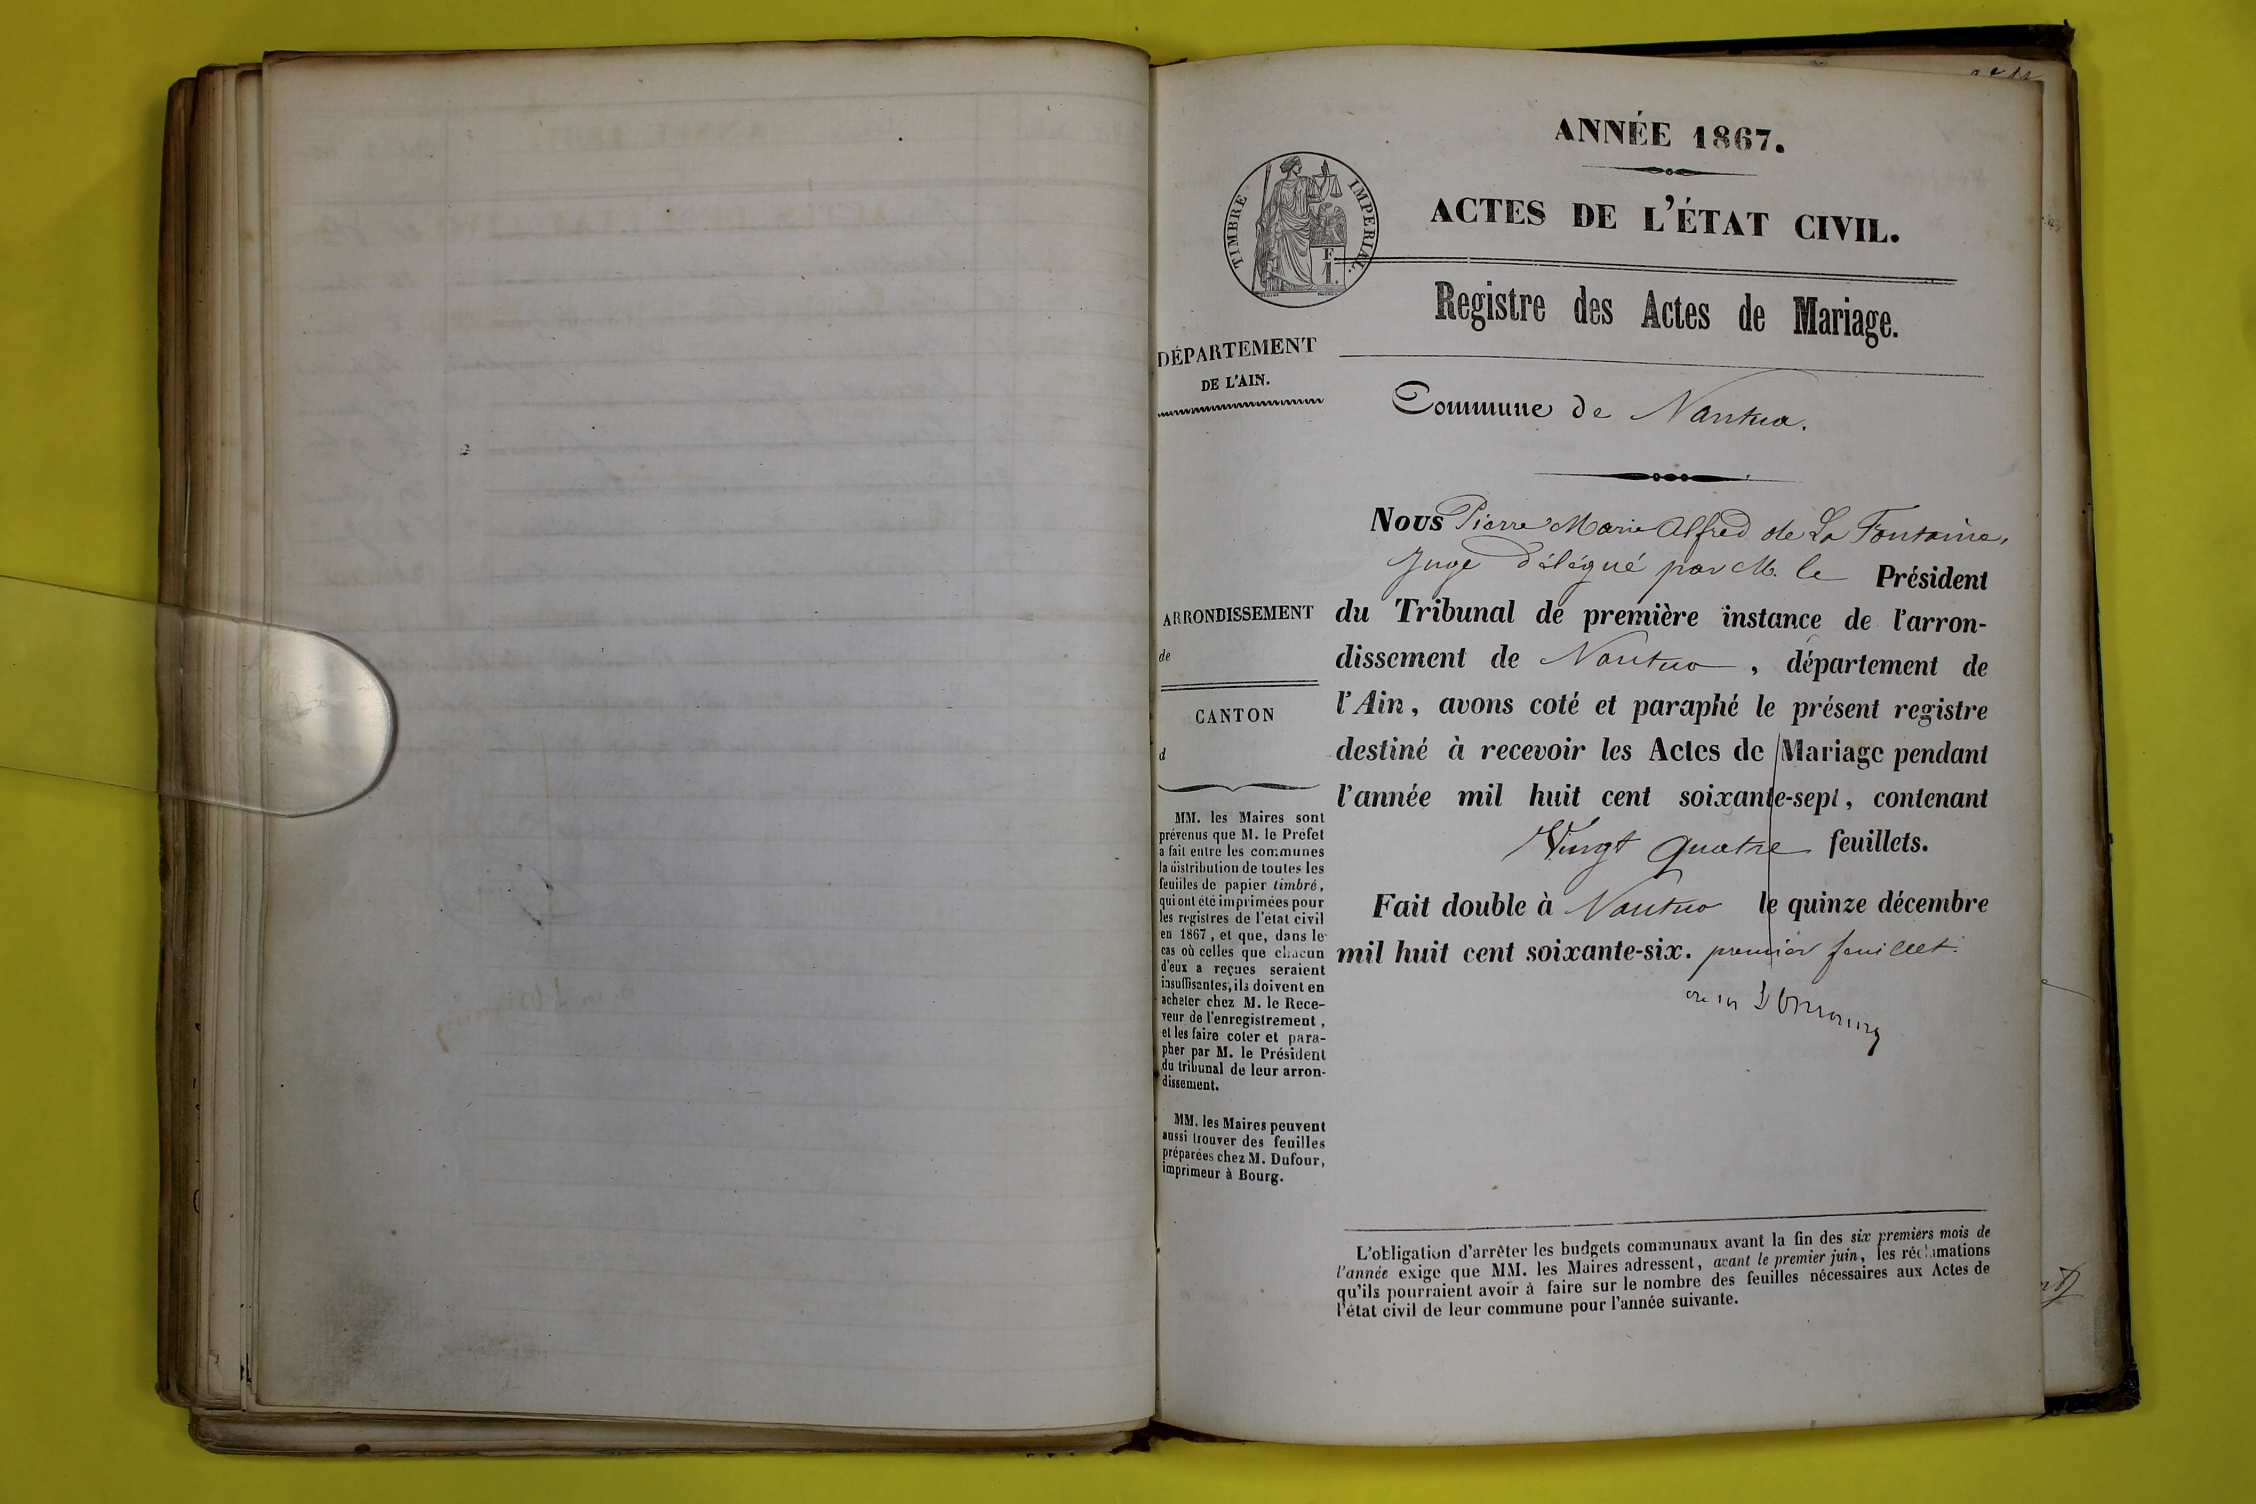 ANNÉE 1867.
TIMBRE IMPERIAL.
F.
1.
ACTES DE L'ÉTAT CIVIL.
Registre des Actes de Mariage.
DÉPARTEMENT
DE L'AIN.
Commune de Nantua.
Nous Pierre Marie Alfred de La Fontaine,
Juge délégué par M. le Président
du Tribunal de première instance de l'arron-
dissement de Nantua, département de
l'Ain, avons coté et paraphé le présent registre
destiné à recevoir les Actes de Mariage pendant
l'année mil huit cent soixante-sept, contenant
Vingt quatre feuillets.
Fait double à Nantua le quinze décembre
mil huit cent soixante-six. premier feuillet.
ARRONDISSEMENT
de
CANTON
d
MM. les Maires sont
prévenus que M. le Préfet
a fait entre les communes
la distribution de toutes les
feuilles de papier timbré,
qui ont été imprimées pour
les registres de l'état civil
en 1867, et que, dans le
cas où celles que chacun
d'eux a reçues seraient
insuffisantes, ils doivent en
acheter chez M. le Rece-
veur de l'enregistrement,
et les faire coter et para-
pher par M. le Président
du tribunal de leur arron-
dissement.
MM. les Maires peuvent
aussi trouver des feuilles
préparées chez M. Dufour,
imprimeur à Bourg.
L'obligation d'arrêter les budgets communaux avant la fin des six premiers mois de
l'année exige que MM. les Maires adressent, avant le premier juin, les réclamations
qu'ils pourraient avoir à faire sur le nombre des feuilles nécessaires aux Actes de
l'état civil de leur commune pour l'année suivante.